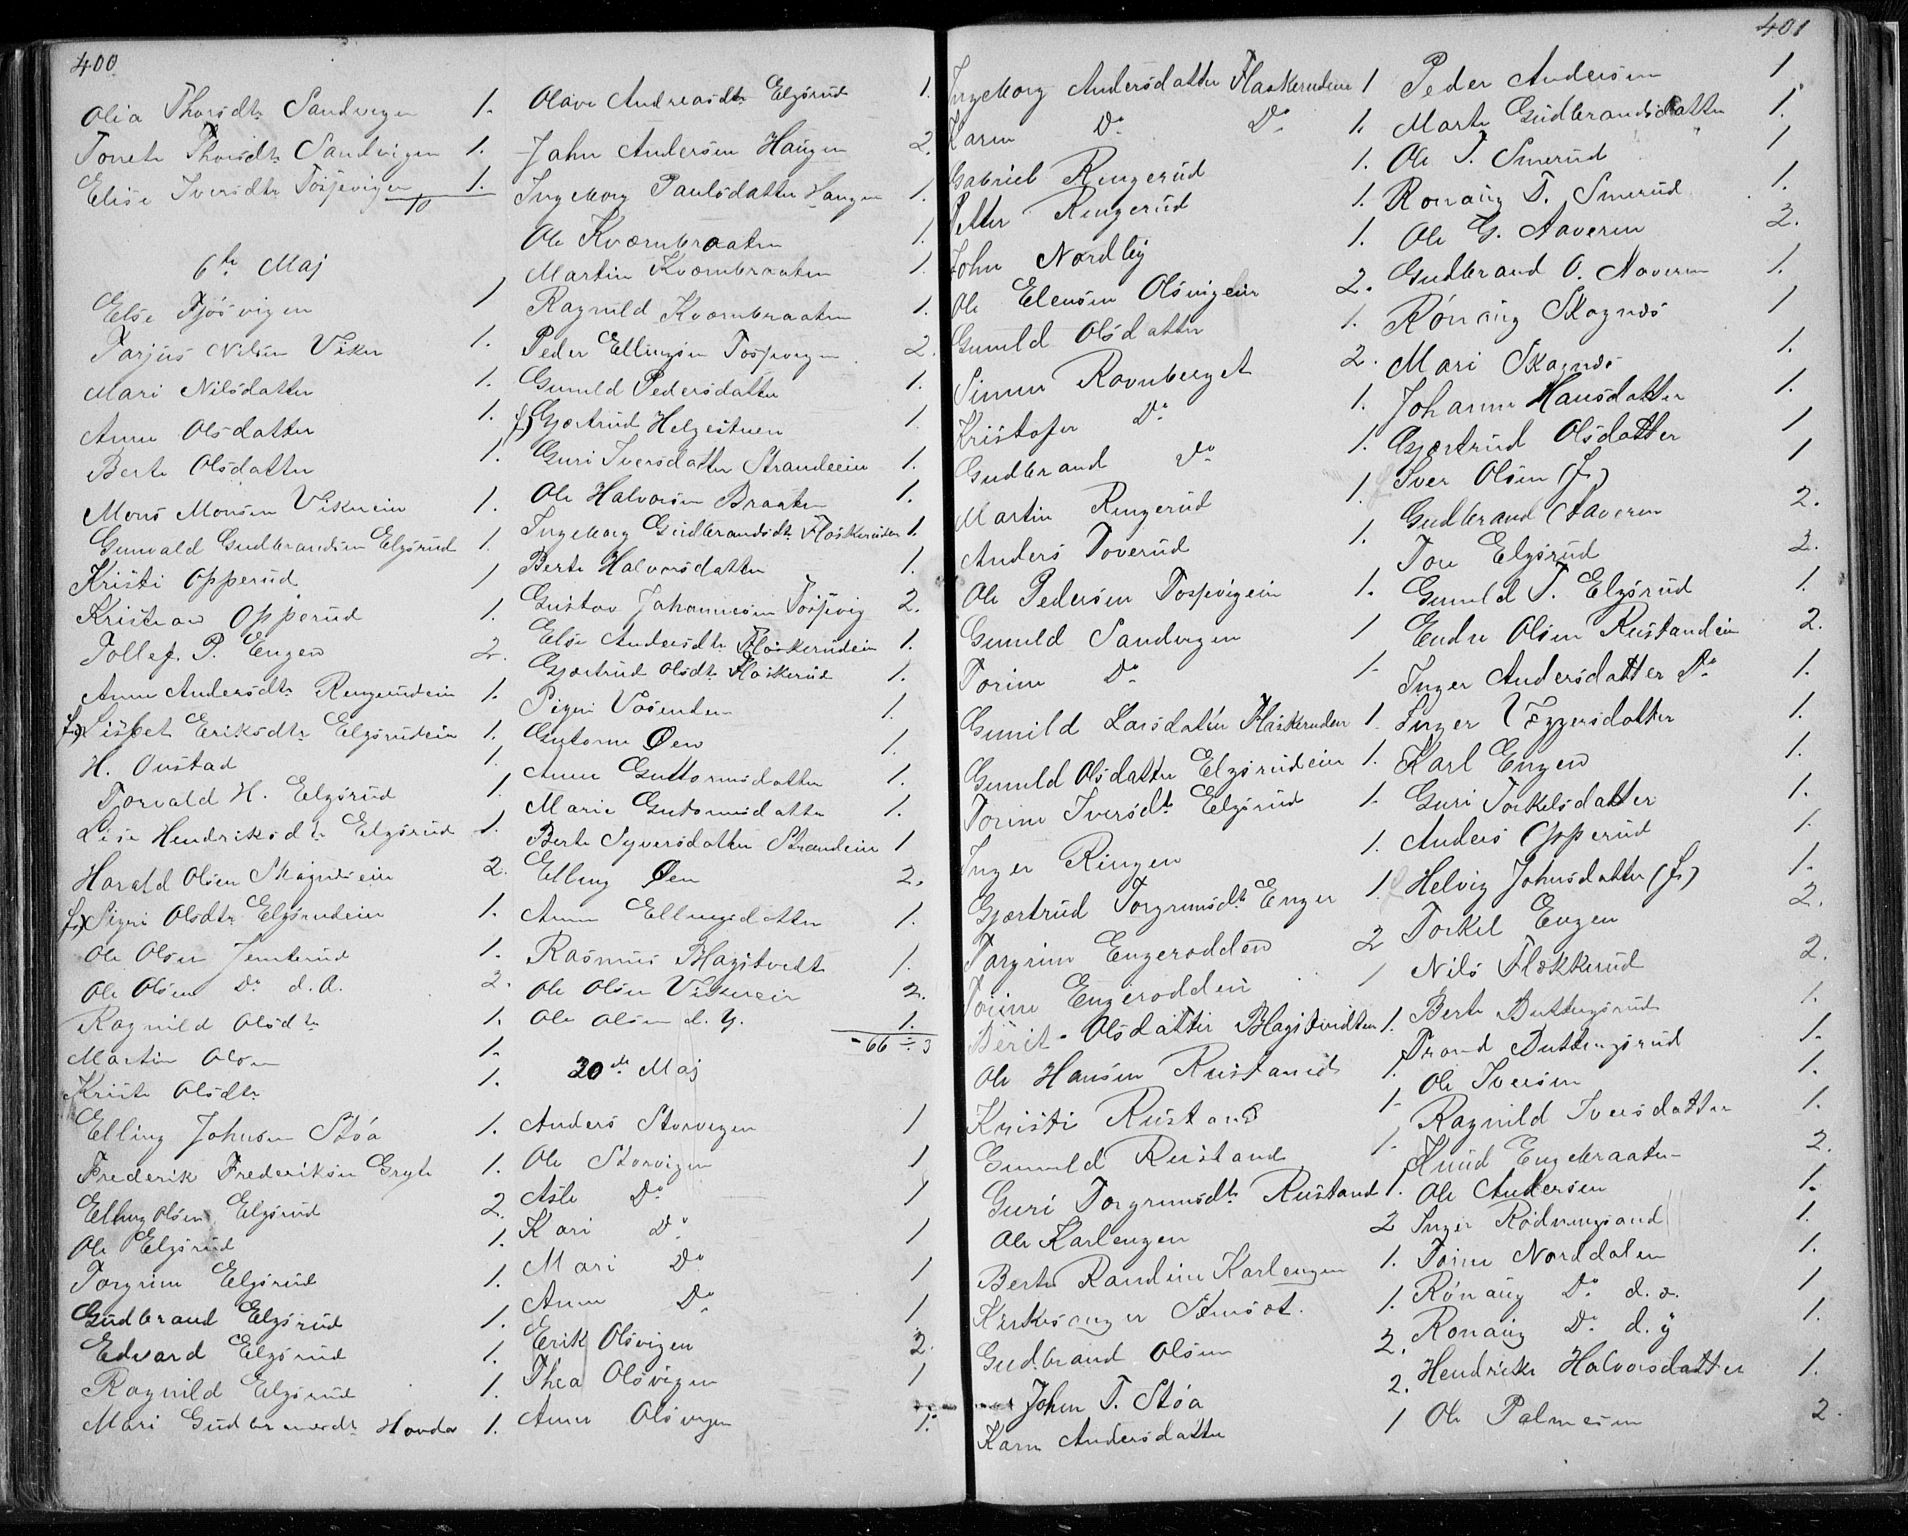 400
Olia Thorsdtr Sandvigen 1.
Toneth Thorsdtr Sandvigen 1.
Elise Iversdtr Tosjevigen 1.
10
6te Maj
Else Fjösvigen 1
Tarjus Nilsen Viker 1.
Mari Nilsdatter 1.
Anne Olsdatter 1.
Berte Olsdatter 1.
Mons Monsen Vikerein 1.
Gunvald Gudbrandsen Elgsrud 1.
Kristi Opperud 1
Kristian Opperud 1.
Tollef. P. Engen 2.
Anne Andersdtr Ringerudein 1.
f) Lisbet Eriksdtr Elgsrudein 1.
H. Onstad 1.
Torvald H. Elgsrud 1.
Lise Hendriksdtr Elgsrud 1.
Harald Olsen Skagnesein 2.
f) Sigri Olsdtr Elgsrudein 1.
Ole Olsen Jemterud 1.
Ole Olsen Do d. A. 2.
Ragnild Olsdtr 1.
Martin Olsen 1.
Kristi Olsdtr 1.
Elling Johnsen Støa 1.
Frederik Frederiksen Gryte 1.
Elling Olsen Elgsrud 2.
Ole Elgsrud 1.
Torgrim Elgsrud 1.
Gudbrand Elgsrud 1.
Edvard Elgsrud 1.
Ragnild Elgsrud 1.
Mari Gudbransdr Hovda 1.
Olave Andreasdtr Elgsrud 1.
John Andersen Haugen 2.
Ingeborg Paulsdatter Haugen 1.
Ole Kværnbraaten 1.
Martin Kværnbraaten 1.
Ragnild Kværnbraaten 1.
Peder Ellingsen Tosjevigen 2.
Gunild Pedersdatter 1.
f) Gjertrud Helgestuen 1
Guri Iversdatter Strandeein 1.
Ole Halvorsen Braaten 1.
Ingeborg Gudbrandsdtr Flaskeruden 1.
Berte Halvorsdatter 1.
Gustav Johannesen Tosjevig 2.
Else Andersdtr Flaskerudein 1.
Gjertrud Olsdtr Flaskerud 1.
Sigri Vasenden 1.
Gutorm Øen 1.
Anne Guttormsdatter 1.
Marie Gutormsdatter 1.
Berte Syversdatter Strandein 1
Elling Øen 2.
Anne Ellingsdatter 1.
Rasmus Hagstvedt 1.
Ole Olsen Vikerein 2.
Ole Olsen d. y. 1.
-66 ÷ 3
20de Maj
Anders Storvigen 1
Ole Storvigen 1
Asle Do 1
Kari Do 1
Mari Do 1
Anne Do 1
Erik Olsvigen 2.
Thea Olsvigen 1
Anne Olsvigen 1.
401
Ingeborg Andersdatter Flaskerudein 1
Karen Do Do 1.
Gabriel Ringerud 1.
Petter Ringerud 1.
John Nordby 1.
Ole Elensen Olsvigein 2.
Gunild Olsdatter 1.
Simen Ravnberget 2.
Kristofer Do 1.
Gudbrand Do 1.
Martin Ringerud 1.
Anders Toverud 1.
Ole Pedersen Tosjevigein 1.
Gunild Sandvigen 1
Torine Do 1
Gunild Larsdatter Flaskeruden 1.
Gunild Olsdatter Elgsrudein 1.
Torine Iversdtr Elgsrud 1.
Inger Ringen 1.
Gjertrud Torgrimsdtr Enger 1.
Torgrim Engerodden 2
Torine Engerodden 1
Berit Olsdatter Hagstvedten 1.
Ole Hansen Rustand 1.
Kristi Rustand 1
Gunild Rustand 1
Guri Torgrimsdtr Rustand 1.
Ole Karlengen 2
Berte Randine Karlengen 1.
Kirkesanger Stensæt. 1.
Gudbrand Olsen 2.
John T. Støa 2.
Karen Andersdatter 1
Peder Andersen 1
Marte Gudbrandsdatter 1.
Ole T. Smerud 1
Ronaug T. Smerud 1.
Ole G. Naveren 2.
Gudbrand O. Naveren 1.
Rønaug Skagnæs 1
Mari Skagnæs 1.
Johanne Hansdatter 1.
Gjertrud Olsdatter 1
Iver Olsen (f) 1
Gudbrand Naveren 2.
Tore Elgsrud 2.
Gunild T. Elgsrud 1.
Endre Olsen Rustandein 2.
Inger Andersdatter Do 1.
Inger Væggersdatter 1.
Karl Engen 1.
Guri Torkelsdatter 1.
Anders Opperud 1.
Helvig Johnsdatter (f) 1.
Torkel Engen 2.
Nils Flækkerud 2.
Berte Buttingsrud 1.
Trond Buttingsrud 1.
Ole Iversen 1.
Ragnild Iversdatter 1.
Knud Engebraaten 2.
Ole Andersen 1.
Inger Rødningsand 1.
Torine Norddalen 1.
Rønaug Do d. æ. 1
Ronaug Do d. y 1.
Hendrikke Halvorsdatter 1.
Ole Palmesen 2.